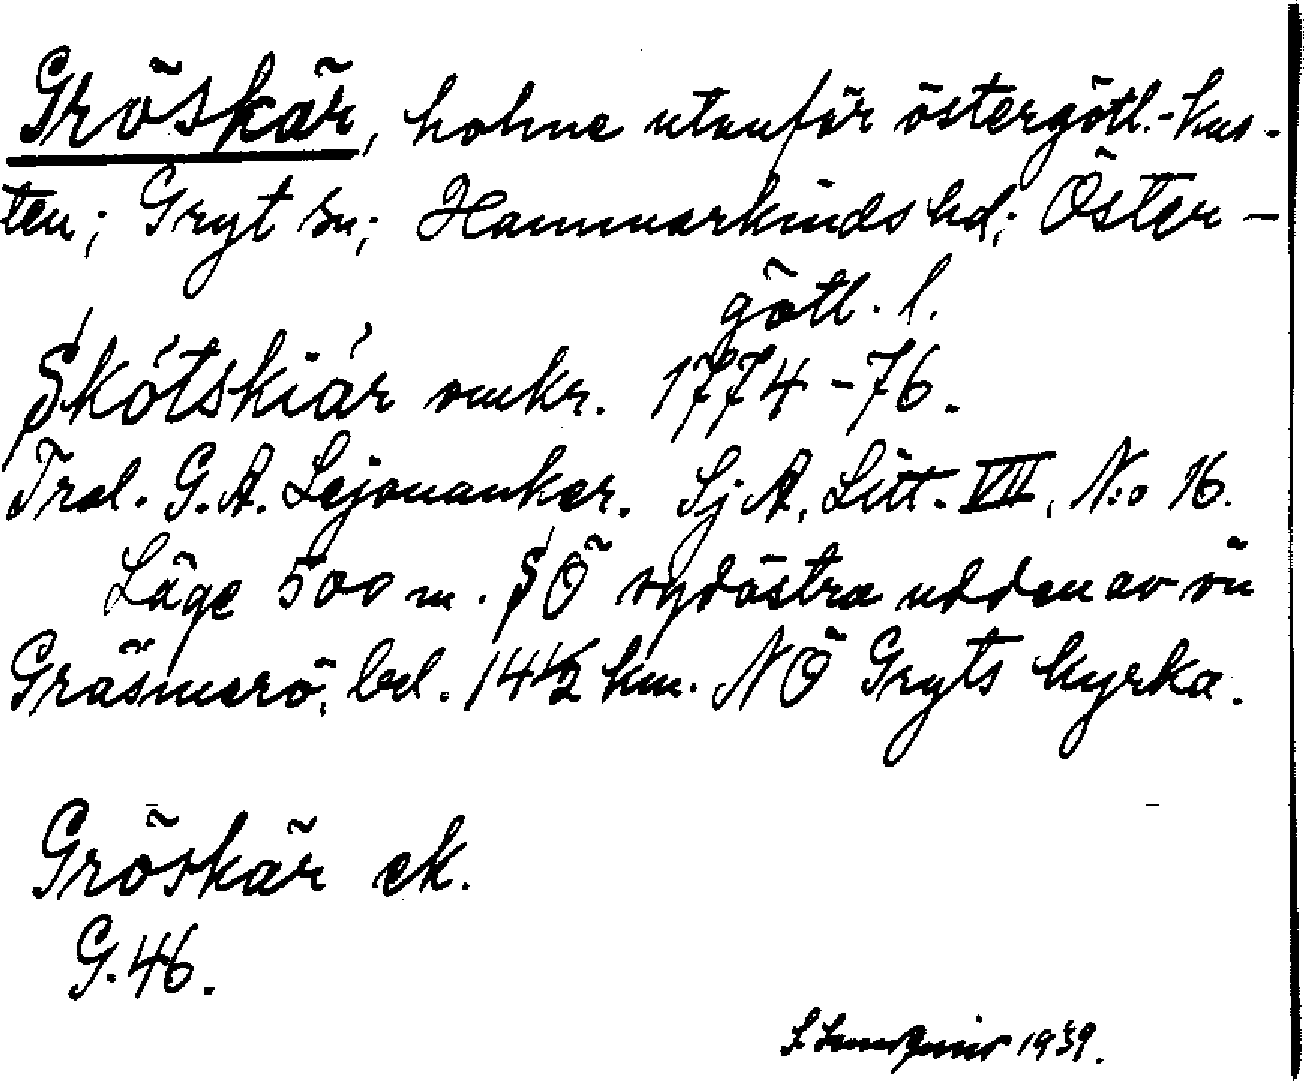 Gröskär, holme utanför östergötl.-kus-
ten; Gryt sn; Hammarkinds hd; Öster-
götl. l.
Skötskiär omkr. 1774-76.
Tral. G. A. Lejonanker. Sj A, Litt. VII, N:o 16.
Läge 500 m. SÖ sydöstra udden av ön
Gräsmarö, bel. 14 1/2 km. NÖ Gryts kyrka.
Gröskär ek.
G. 46.
1939.